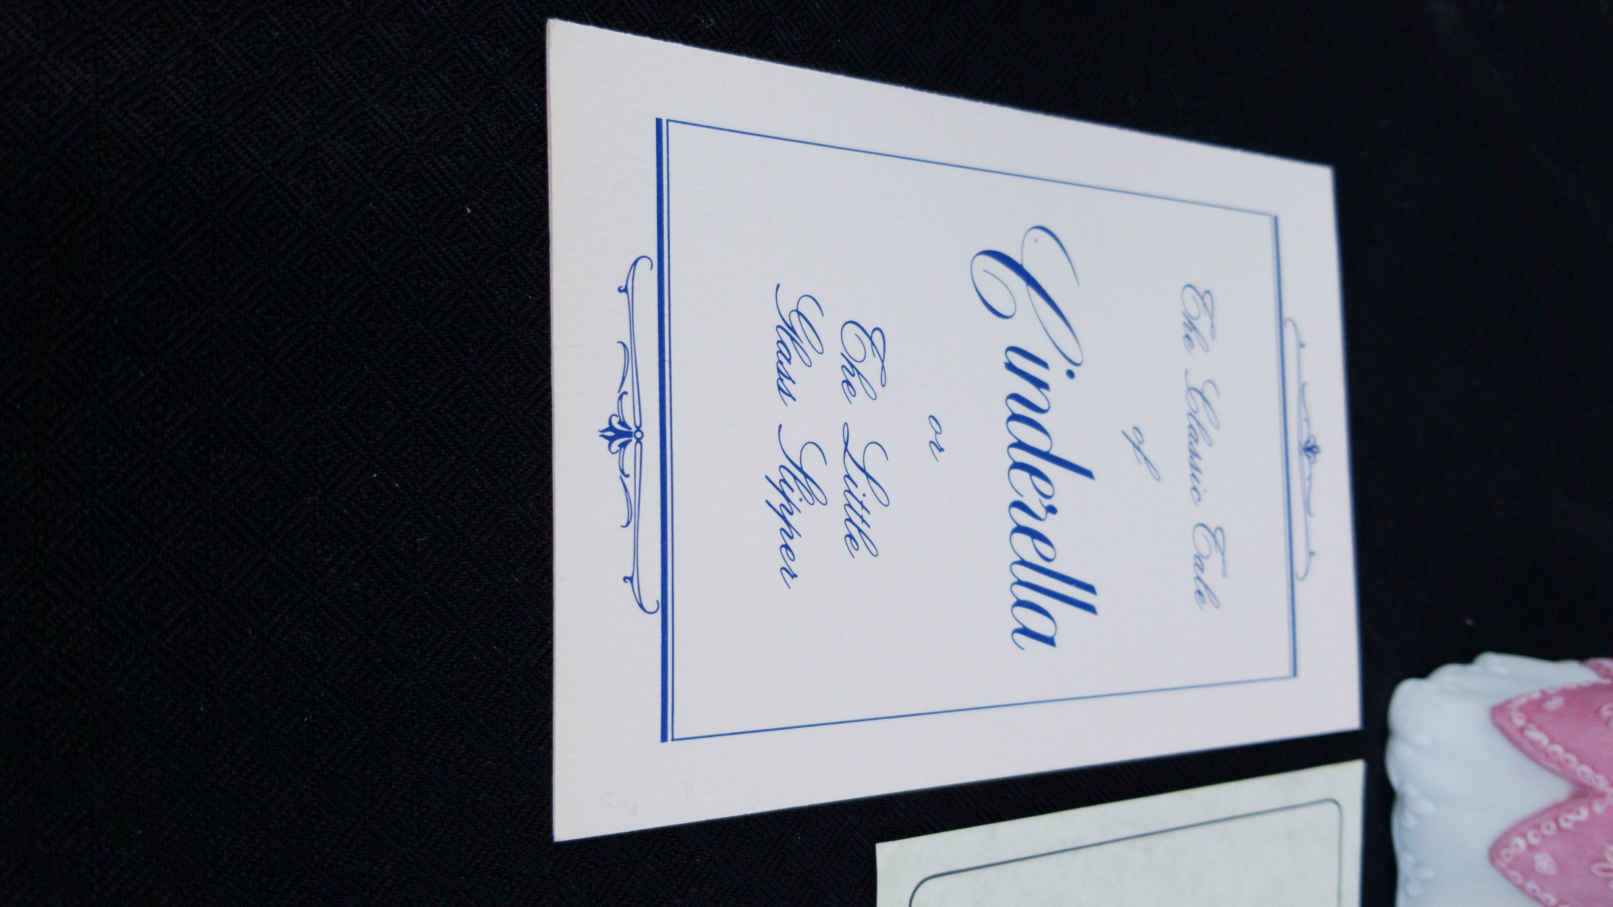 The Classic Tale
of
Cinderella
or
The Little
Glass Slipper